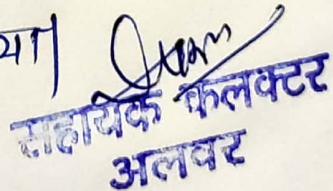 या|
सहायक कलक्टर
अलवर